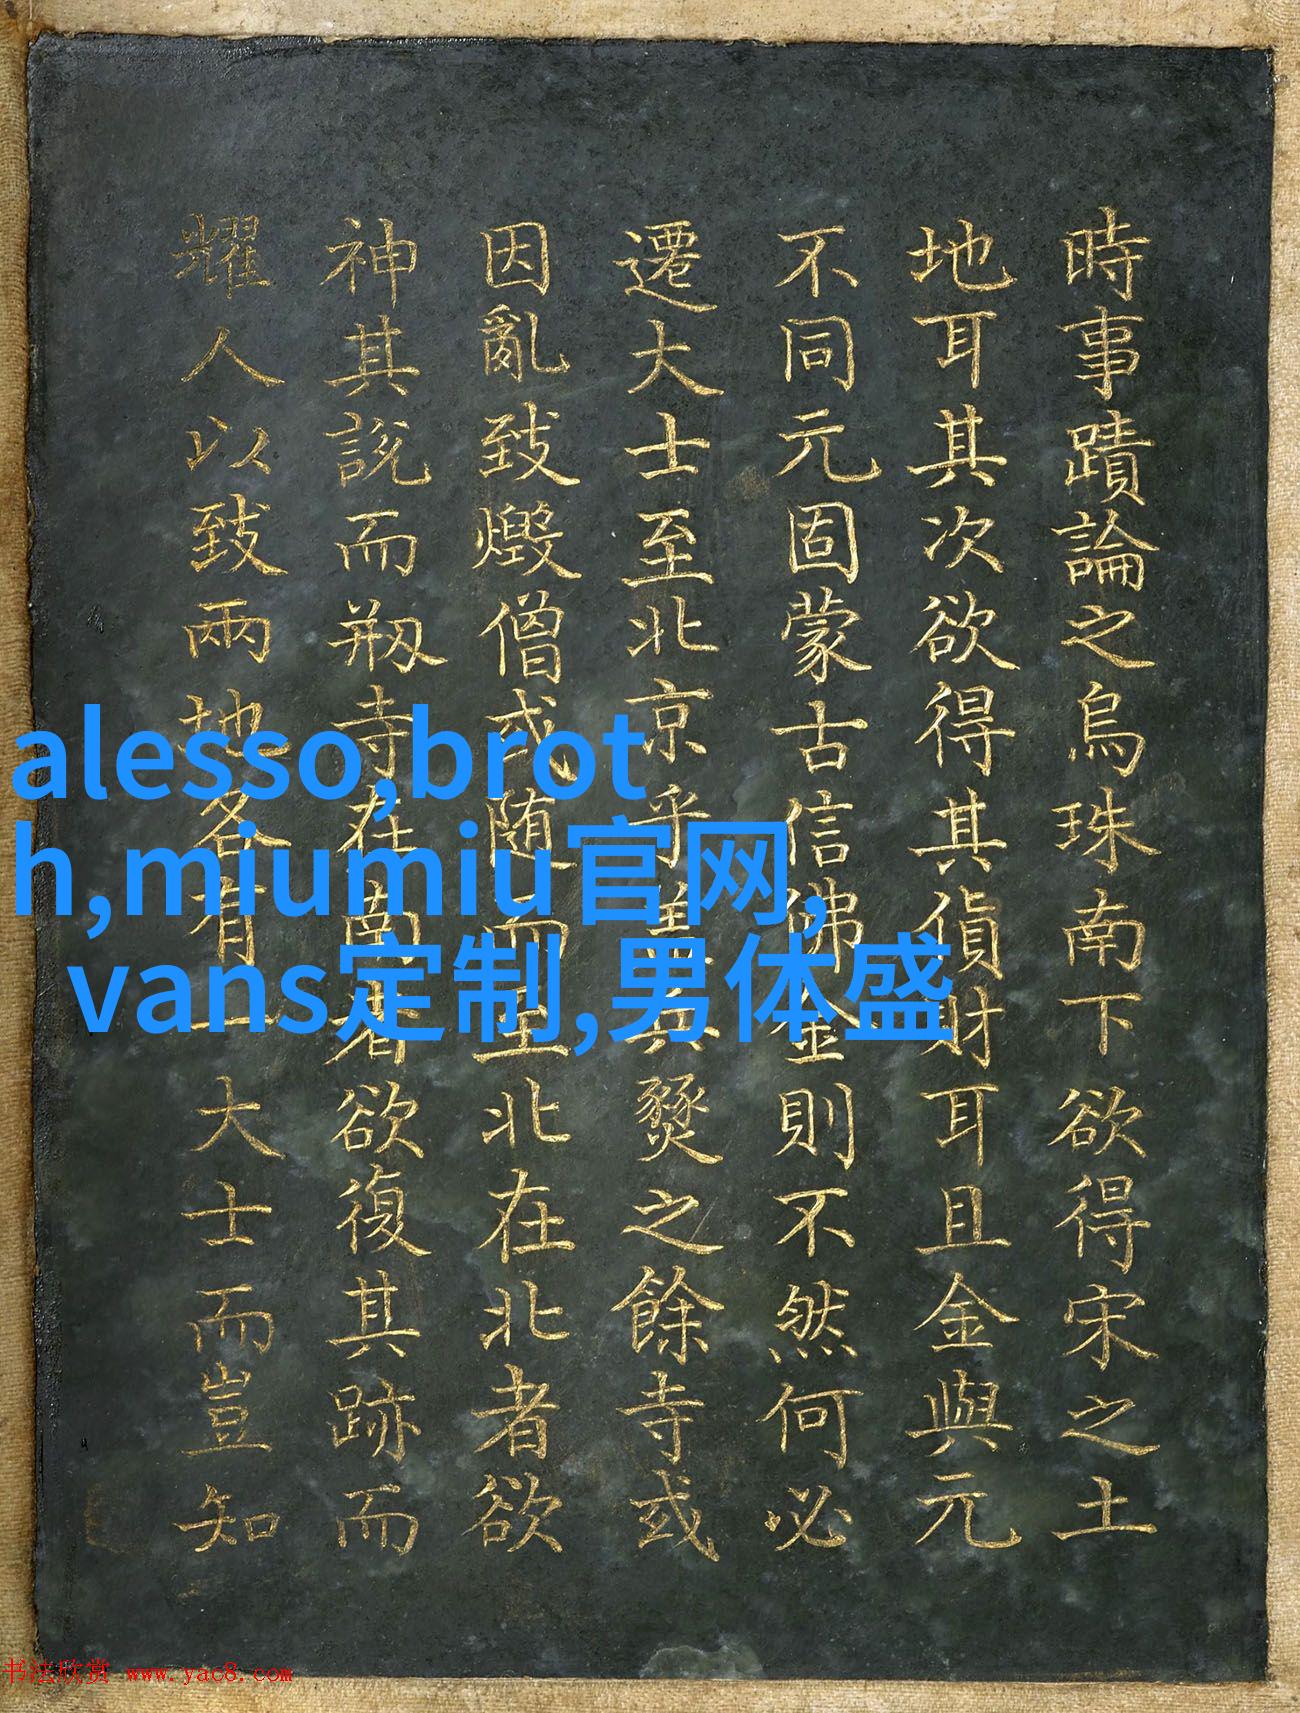 時事蹟論之烏珠南下欲得宋之土
地耳其次欲得其貨財耳且金與元
不同元固蒙古信佛金則不然何必
遷大士至北京乎其燹之餘寺或
因亂致燬僧或随而至北在北者欲
神其說而剏寺在南者欲復其跡而
耀人以致兩地各有一大士而豈知
alesso,brot
h,miumiu官网,
vans定制,男体盛
书法欣赏 www.yac8.com